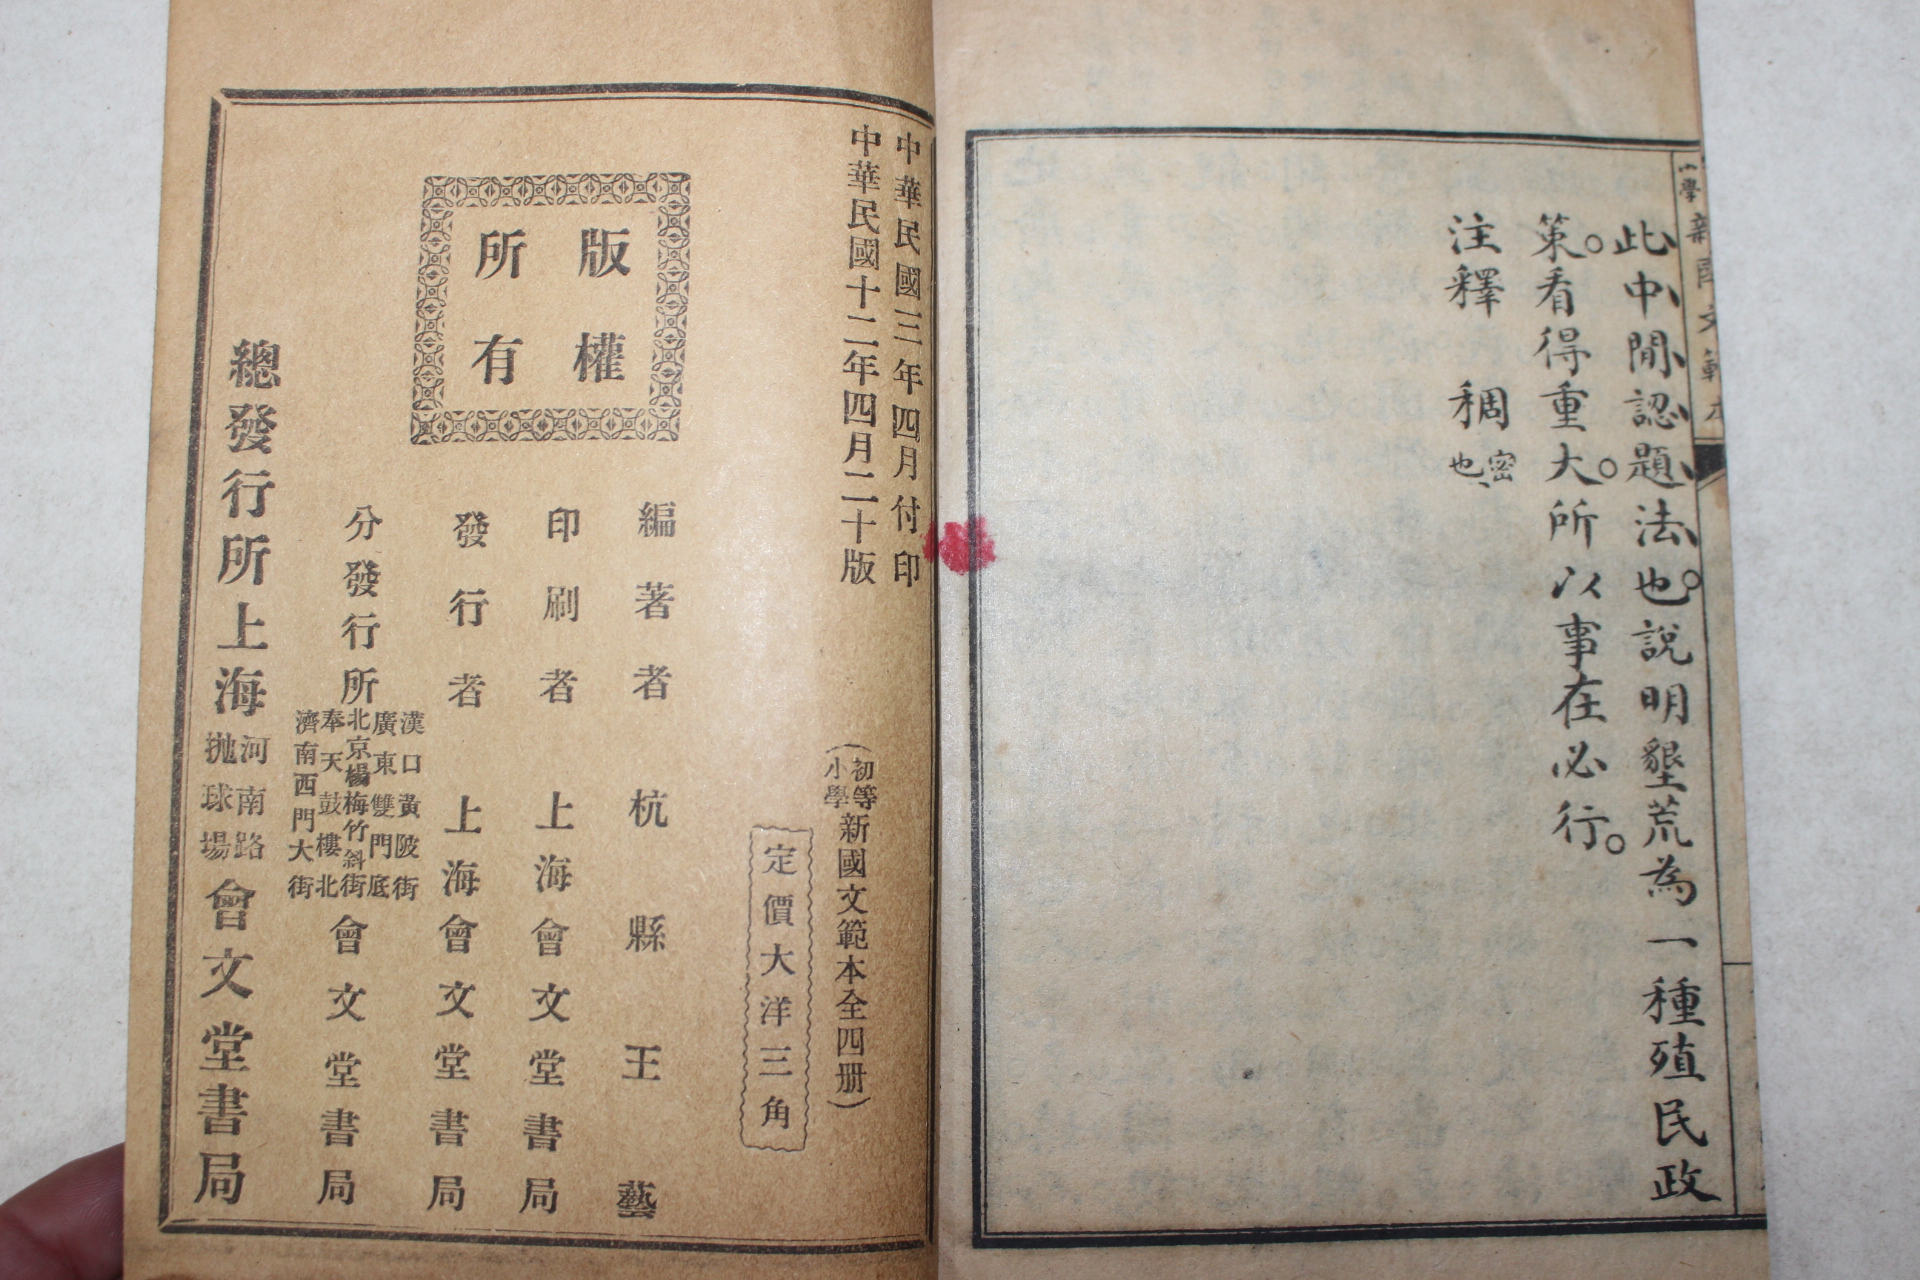 小學新國文範本
此中間認題法也。說明墾荒為一種殖民政
策。看得重大。所以事在必行。
注釋 稠密也、
中華民國三年四月付印
中華民國十二年四月二十版
(初等小學新國文範本全四册)
定價大洋三角
版權
所有
編著者 杭縣王藝
印刷者 上海會文堂書局
發行者 上海會文堂書局
分發行所
漢口黃陂街
廣東雙門底
北京楊梅竹斜街
奉天鼓樓北
濟南西門大街
會文堂書局
總發行所上海
河南路
拋球場
會文堂書局